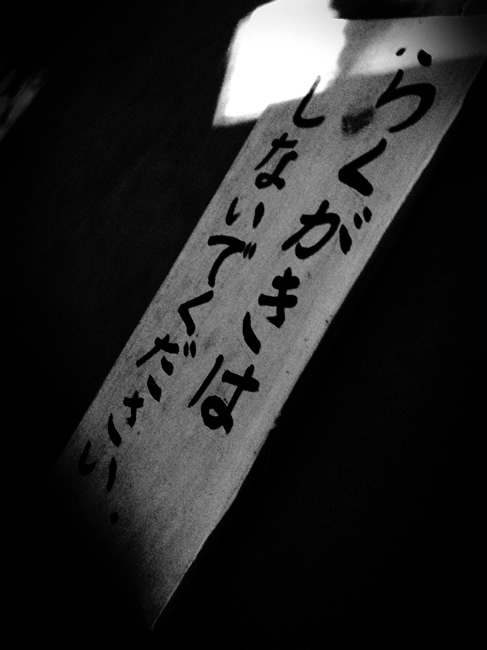 らくがきは
しないでください.